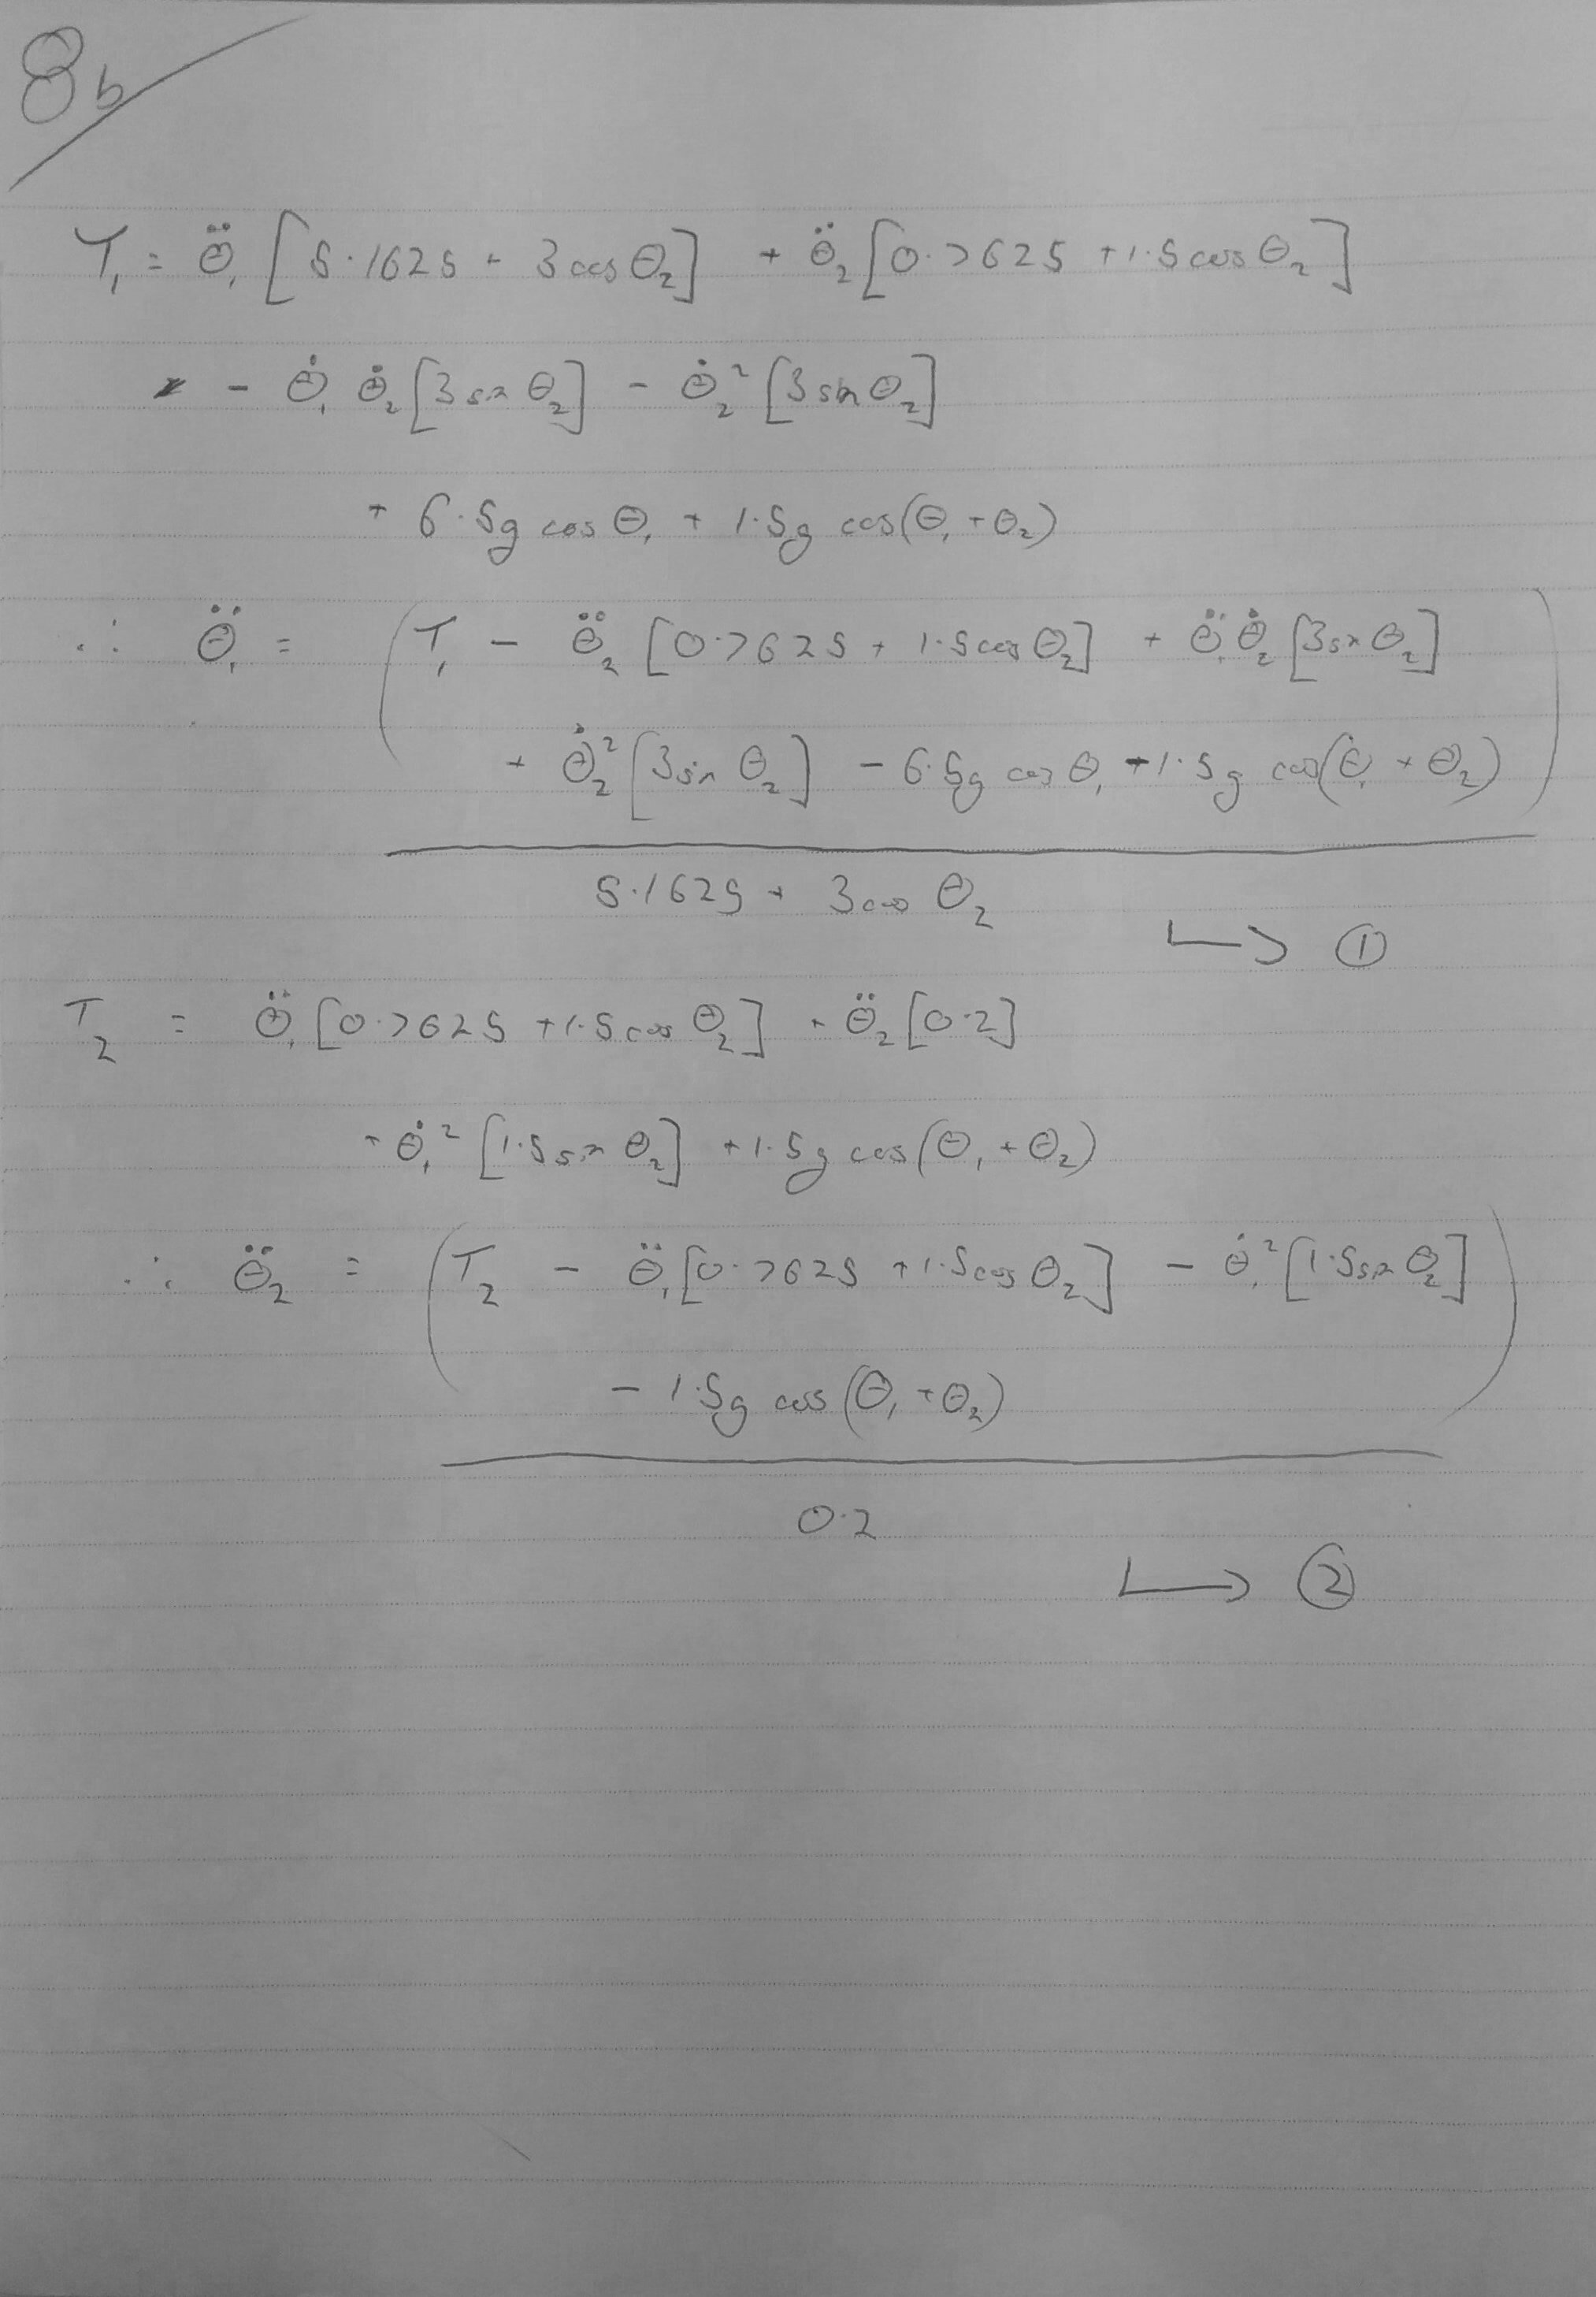 8b
T₁ = θ̈₁ [5.1625 + 3cos θ₂] + θ̈₂ [0.7625 + 1.5cos θ₂]
- θ̇₁ θ̇₂ [3sin θ₂] - θ̇₂² [3sin θ₂]
+ 6.5g cos θ₁ + 1.5g cos(θ₁ + θ₂)
∴ θ̈₁ = (T₁ - θ̈₂ [0.7625 + 1.5cos θ₂] + θ̈₁ θ̇₂ [3sin θ₂]
+ θ̇₂² [3sin θ₂] - 6.5g cos θ₁ - 1.5g cos(θ₁ + θ₂))
5.1625 + 3cos θ₂
↳ ①
T₂ = θ̈₁ [0.7625 + 1.5cos θ₂] + θ̈₂ [0.2]
+ θ̇₁² [1.5sin θ₂] + 1.5g cos(θ₁ + θ₂)
∴ θ̈₂ = (T₂ - θ̈₁ [0.7625 + 1.5cos θ₂] - θ̇₁² [1.5sin θ₂]
- 1.5g cos(θ₁ + θ₂))
0.2
↳ ②